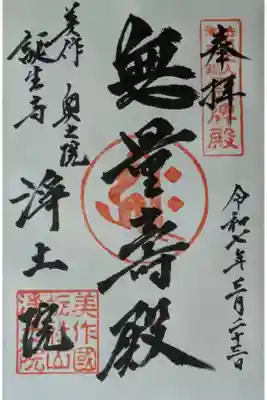 奉拝
令和七年三月二十三日
無量壽殿
美作 奥之院
誕生寺 浄土院
美作國
浄土院